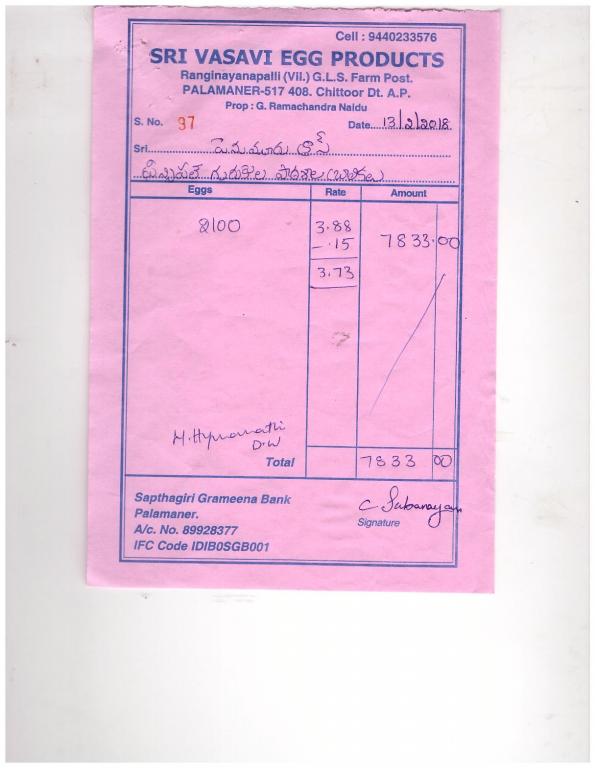 Cell : 9440233576
SRI VASAVI EGG PRODUCTS
Ranginayanapalli (Vil.) G.L.S. Farm Post.
PALAMANER-517 408. Chittoor Dt. A.P.
Prop : G. Ramachandra Naidu
S. No. 97 Date 13/2/2018
Sri పెనుమూరు క్రాస్
గురుకుల పాఠశాల
Eggs Rate Amount
2100 3.88 7833.00
- .15
3.73
D.W
Total 7833 00
Sapthagiri Grameena Bank
Palamaner.
A/c. No. 89928377
IFC Code IDIB0SGB001
Signature